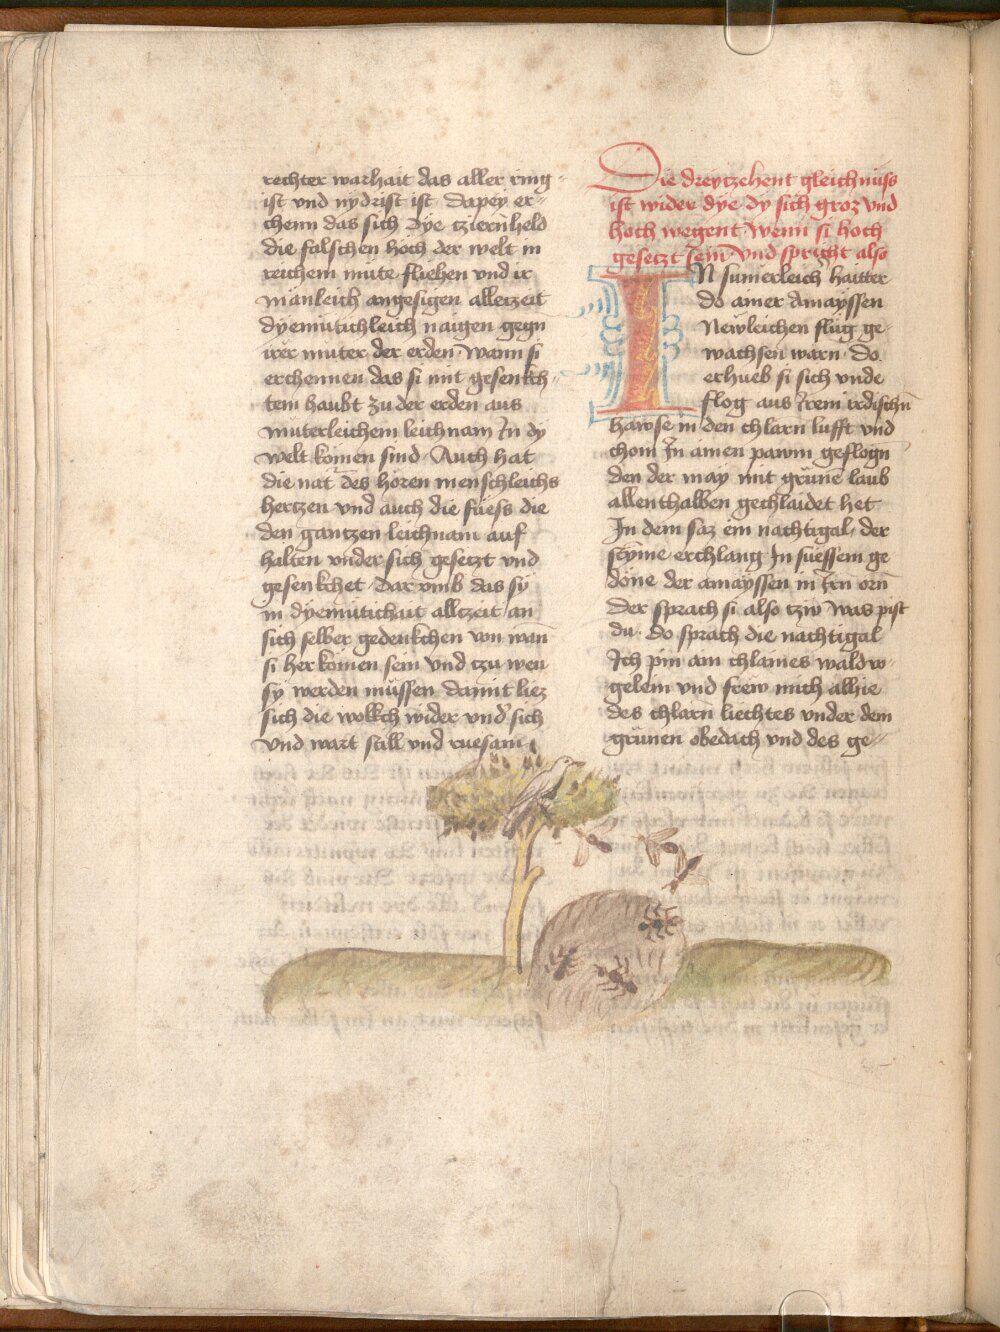 rechter warhait das aller ring-
ist und nydrist ist · dapey er-
chenn das sich dye cziernheld
die falschen hoch der welt in
reichem mute fliehen vnd ir
manleich angesigen allerzeit
dyemutichleich naigen gegn
irer muter der erden · Wann si
erchennen das si mit gesenkch-
tem haubt zu der erden aus
muterleichem leichnam Jn dy
welt komen sind · Auch hat
die nat des horen menschleichs
hertzen vnd auch die fuess die
den gantzen leichnam auf
halten vnder sich gesetzt vnd
gesenkchet · Dar vmb das sy
in dyemutichait allzeit an
sich selber gedenkchen von wan
si her komen sein vnd czu wew
sy werden müssen damit liez
sich die wolkch wider vnd sich
vnd wart still vnd ruesam
Die dreyczehent gleichnuss
ist wider dye dy sich groz vnd
hoch wegent Wenn si hoch
gesetzt sein Vnd spricht also
IN sumerleich haitter
do ainer Amayssen
Newleichen flüg ge-
wachsen warn · do
erhueb si sich vnde
flog aus Jrem irdischn
hawse in den chlarn lufft vnd
chom Jn ainen pawm geflogn
den der may mit grüne laub
allenthalben gechlaidet het
Jn dem saz ein nachtigal der
stÿme erchlang Jn suessem ge
döne der amayssen in Jrn orn
Der sprach si also tziv was pist
du · do sprach die nachtigal
Jch pin ain chlaines wald v-
gelein vnd frew mich allhie
des chlarn liechtes vnder dem
grünen obedach vnd des ge-